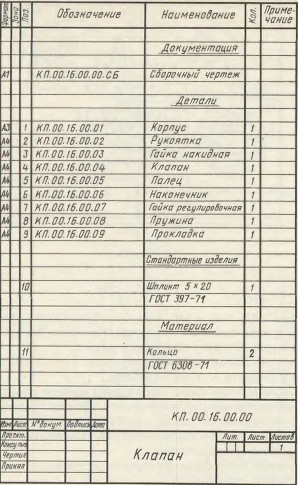 Формат Зона Поз. Обозначение Наименование Кол. Приме-
чание
Документация
А1 КП.00.16.00.00.СБ Сборочный чертеж
Детали
А3 1 КП.00.16.00.01 Корпус 1
А4 2 КП.00.16.00.02 Рукоятка 1
А4 3 КП.00.16.00.03 Гайка накидная 1
А4 4 КП.00.16.00.04 Клапан 1
А4 5 КП.00.16.00.05 Палец 1
А4 6 КП.00.16.00.06 Наконечник 1
А4 7 КП.00.16.00.07 Гайка регулировочная 1
А4 8 КП.00.16.00.08 Пружина 1
А4 9 КП.00.16.00.09 Прокладка 1
Стандартные изделия
10 Шплинт 5×20 1
ГОСТ 397-71
Материал
11 Кольцо 2
ГОСТ 6308-71
КП.00.16.00.00
Изм Лист № докум Подпись Дата
Клапан
Лит. Лист Листов
1
Консульт
Чертил
Принял